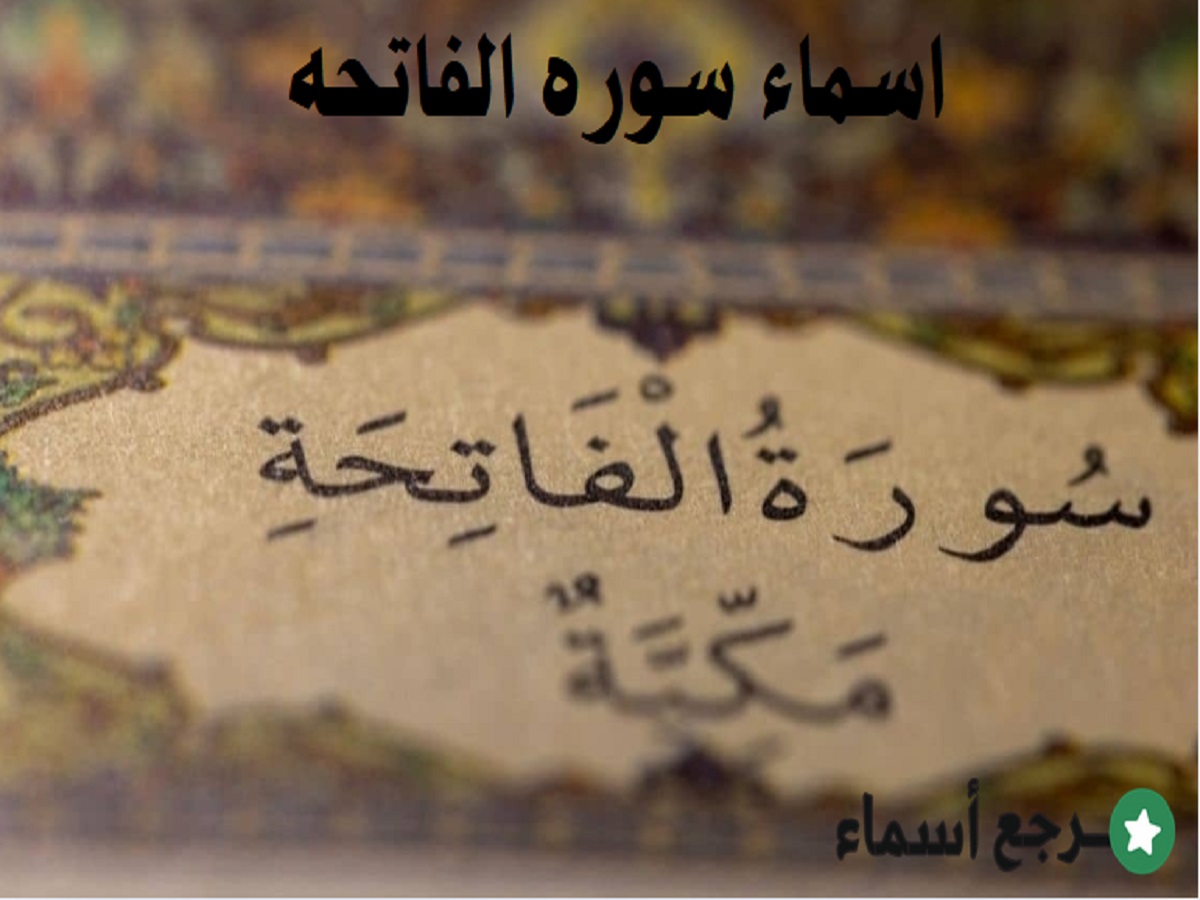 اسماء سوره الفاتحه
سُورَةُ الْفَاتِحَةِ
مَكِّيَّةٌ
مرجع أسماء